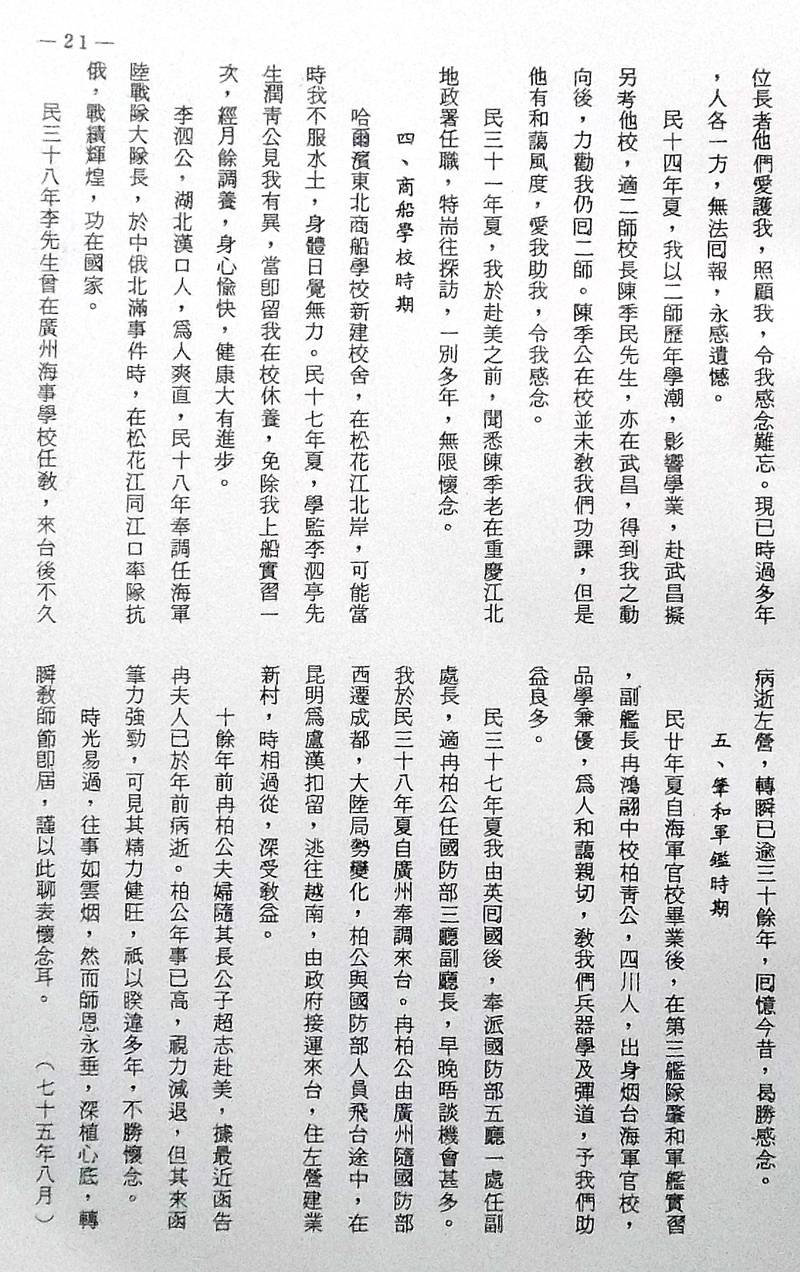 —21—
位長者他們愛護我，照顧我，令我感念難忘。現已時過多年
，人各一方，無法囘報，永感遺憾。
民十四年夏，我以二師歷年學潮，影響學業，赴武昌擬
另考他校，適二師校長陳季民先生，亦在武昌，得到我之動
向後，力勸我仍囘二師。陳季公在校並未敎我們功課，但是
他有和藹風度，愛我助我，令我感念。
民三十一年夏，我於赴美之前，聞悉陳季老在重慶江北
地政署任職，特耑往探訪，一別多年，無限懷念。
四、商船學校時期
哈爾濱東北商船學校新建校舍，在松花江北岸，可能當
時我不服水土，身體日覺無力。民十七年夏，學監李泗亭先
生潤靑公見我有異，當卽留我在校休養，免除我上船實習一
次，經月餘調養，身心愉快，健康大有進步。
李泗公，湖北漢口人，爲人爽直，民十八年奉調任海軍
陸戰隊大隊長，於中俄北滿事件時，在松花江同江口率隊抗
俄，戰績輝煌，功在國家。
民三十八年李先生曾在廣州海事學校任敎，來台後不久
病逝左營，轉瞬已逾三十餘年，囘憶今昔，曷勝感念。
五、肇和軍鑑時期
民廿年夏自海軍官校畢業後，在第三艦隊肇和軍艦實習
，副艦長冉鴻翮中校柏靑公，四川人，出身烟台海軍官校，
品學兼優，爲人和藹親切，敎我們兵器學及彈道，予我們助
益良多。
民三十七年夏我由英囘國後，奉派國防部五廳一處任副
處長，適冉柏公任國防部三廳副廳長，早晚晤談機會甚多。
我於民三十八年夏自廣州奉調來台。冉柏公由廣州隨國防部
西遷成都，大陸局勢變化，柏公與國防部人員飛台途中，在
昆明爲盧漢扣留，逃往越南，由政府接運來台，住左營建業
新村，時相過從，深受敎益。
十餘年前冉柏公夫婦隨其長公子超志赴美，據最近函告
冉夫人已於年前病逝。柏公年事已高，視力減退，但其來函
筆力強勁，可見其精力健旺，祇以暌違多年，不勝懷念。
時光易過，往事如雲烟，然而師恩永垂，深植心底，轉
瞬敎師節卽屆，謹以此聊表懷念耳。（七十五年八月）